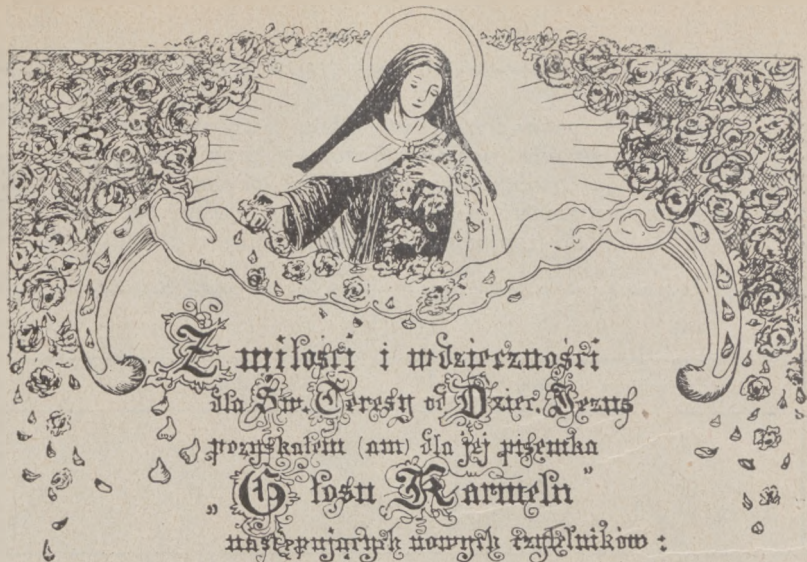 Z miłości i wdzięczności
dla Św. Teresy od Dziec. Jezus
pozyskałem (am) dla jej pisemka
„Głosu Karmelu”
następujących nowych czytelników: